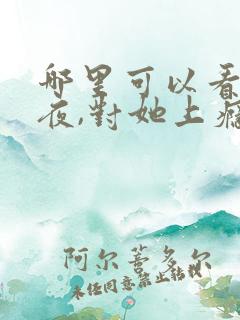 哪里可以看
夜,對她上癮
阿尔蔷多尔
未经同意禁止转载